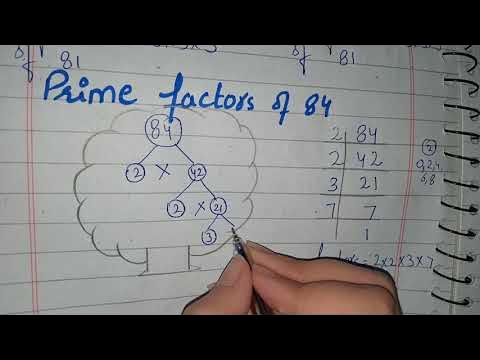 81
81
Prime factors of 84
84
2 × 42
2 × 21
3
2 | 84
2 | 42
3 | 21
7 | 7
1
2
0,2,4
6,8
factors = 2×2×3×7